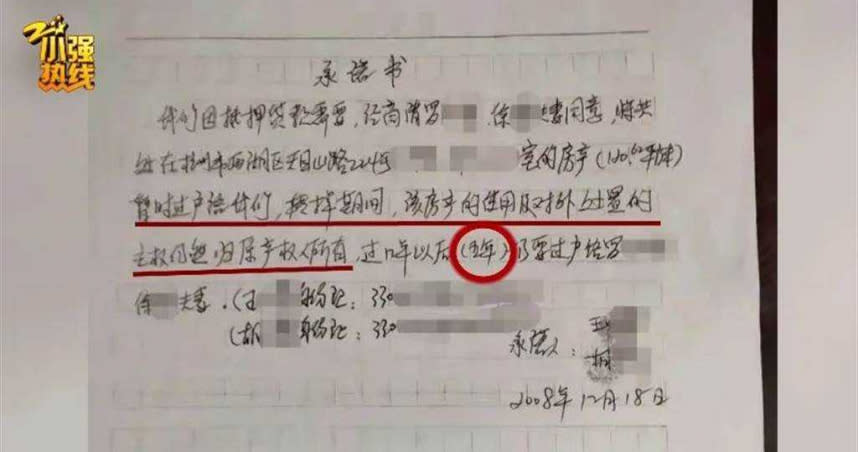 小强
热线
承诺书
我们因抵押贷款需要，经商请罗 徐 夫妻同意，将其
坐在杭州市西湖区天目山路224号 室的房产（120.62平方米）
暂时过户给我们，抵押期间，该房产的使用及对外处置的
主权仍然归原产权人所有，过户年以后（五年）仍要过户给罗
徐 夫妻．（王 身份证：330
（胡 身份证：330
承诺人：王
胡
2008年12月18日